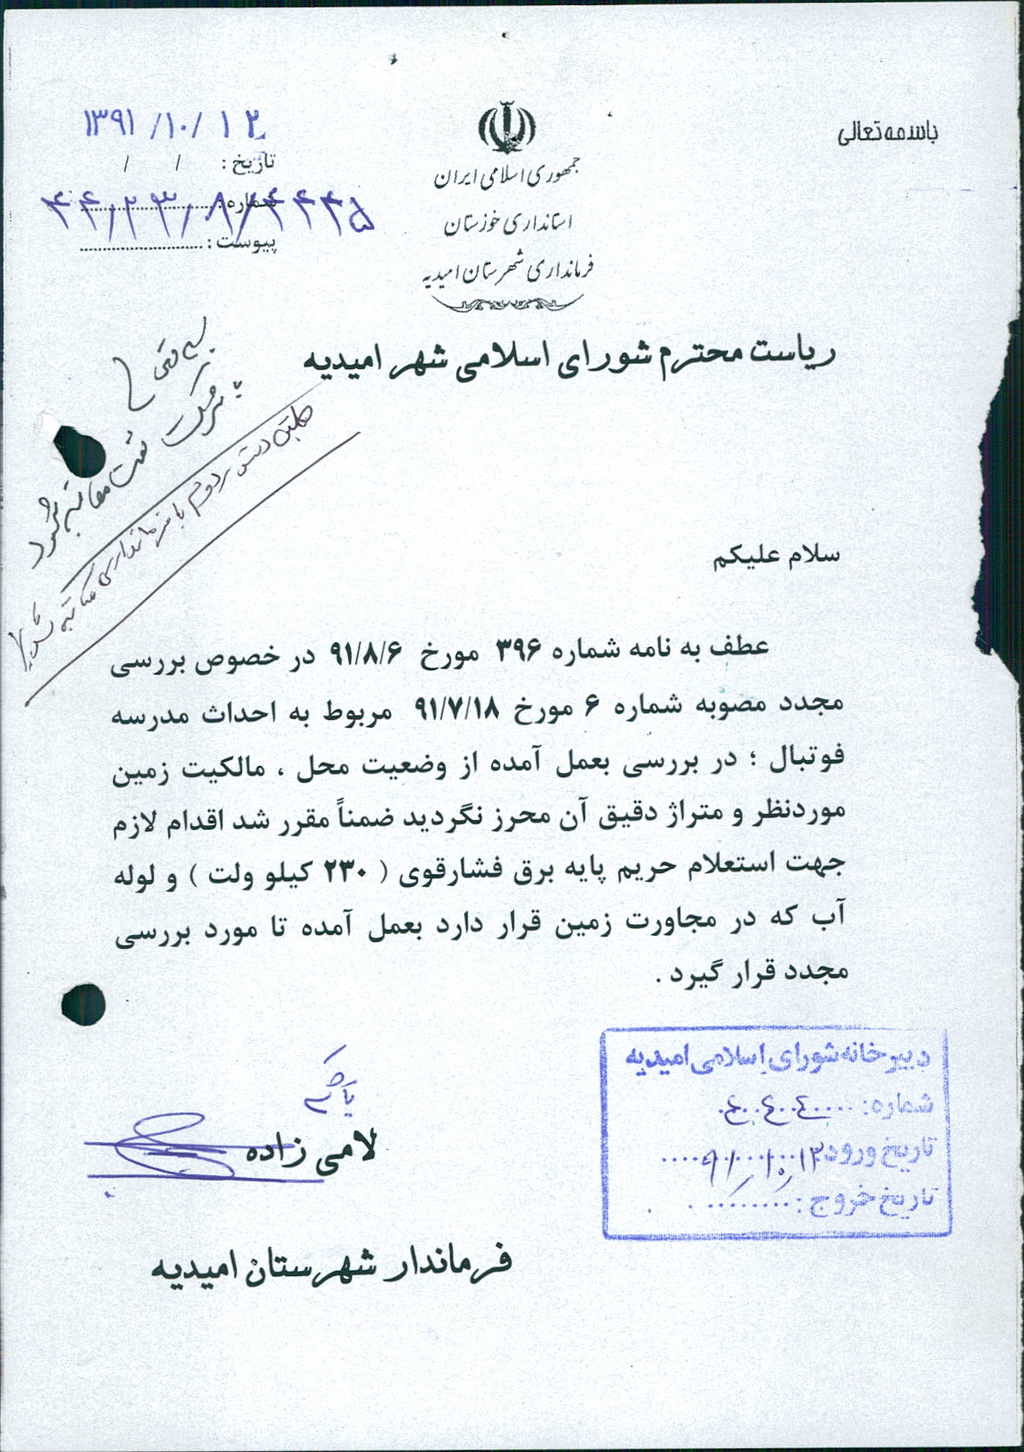 باسمه تعالی
جمهوری اسلامی ایران
استانداری خوزستان
فرمانداری شهرستان امیدیه
۱۳۹۱/۱۰/۱۲
تاریخ : / /
شماره :
پیوست :
ریاست محترم شورای اسلامی شهر امیدیه
سلام علیکم
عطف به نامه شماره ۳۹۶ مورخ ۹۱/۸/۶ در خصوص بررسی
مجدد مصوبه شماره ۶ مورخ ۹۱/۷/۱۸ مربوط به احداث مدرسه
فوتبال ؛ در بررسی بعمل آمده از وضعیت محل ، مالکیت زمین
موردنظر و متراژ دقیق آن محرز نگردید ضمناً مقرر شد اقدام لازم
جهت استعلام حریم پایه برق فشارقوی ( ۲۳۰ کیلو ولت ) و لوله
آب که در مجاورت زمین قرار دارد بعمل آمده تا مورد بررسی
مجدد قرار گیرد .
لامی زاده
فرماندار شهرستان امیدیه
دبیرخانه شورای اسلامی امیدیه
شماره:
تاریخ ورود: ۹۱/۱۰/۱۳
تاریخ خروج :